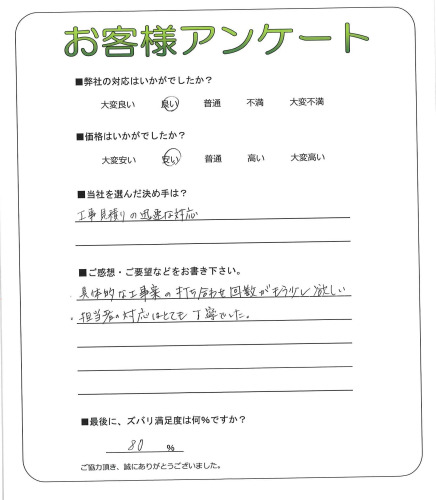 お客様アンケート
■弊社の対応はいかがでしたか？
大変良い 良い 普通 不満 大変不満
■価格はいかがでしたか？
大変安い 安い 普通 高い 大変高い
■当社を選んだ決め手は？
工事見積りの迅速な対応
■ご感想・ご要望などをお書き下さい。
・具体的な工事案の打ち合わせ回数がもう少し欲しい
・担当者の対応はとても丁寧でした。
■最後に、ズバリ満足度は何%ですか？
80 %
ご協力頂き、誠にありがとうございました。